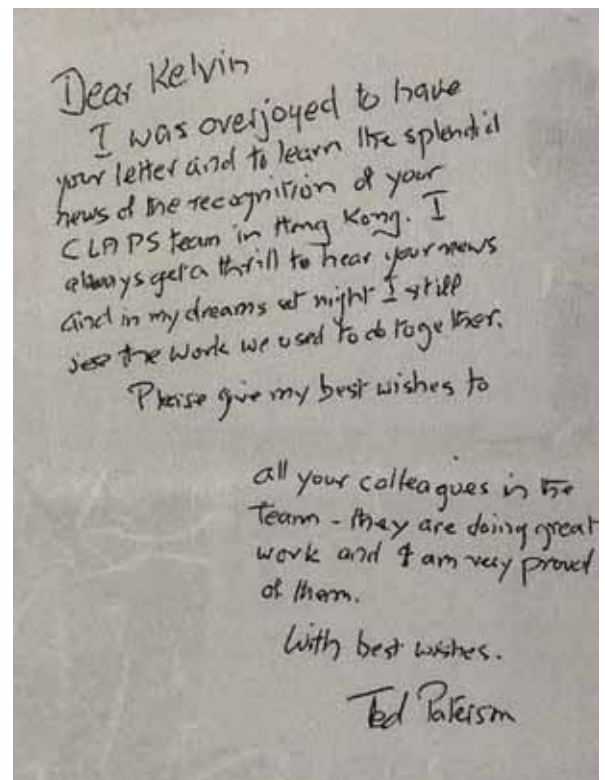 Dear Kelvin
I was overjoyed to have
your letter and to learn the splendid
news of the recognition of your
CLAPS team in Hong Kong. I
always get a thrill to hear your news
and in my dreams at night I still
see the work we used to do together.
Please give my best wishes to
all your colleagues in the
team - they are doing great
work and I am very proud
of them.
With best wishes.
Ted Paterson